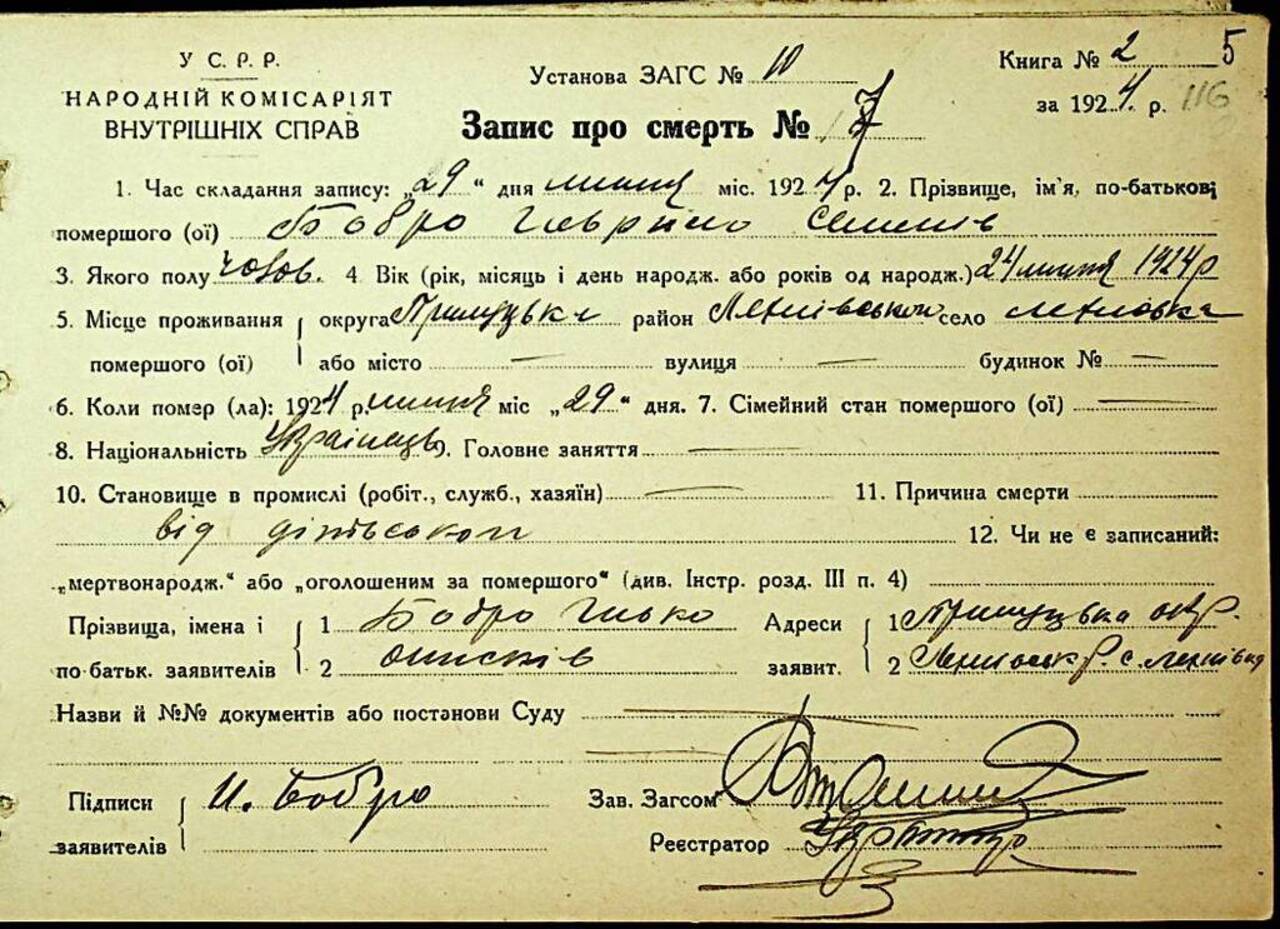 У. С. Р. Р.
НАРОДНІЙ КОМІСАРІЯТ
ВНУТРІШНІХ СПРАВ
Установа ЗАГС № 10
Запис про смерть № 7
Книга № 2 5
за 1924 р. 116
1. Час складання запису: „29“ дня липня міс. 1924 р. 2. Прізвище, ім'я, по-батькові
помершого (ої) Бобро Гаврило
3. Якого полу чолов. 4. Вік (рік, місяць і день народж. або років од народж.) 24 липня 1924 р
5. Місце проживання округа Прилуцька район село
помершого (ої) або місто — вулиця — будинок № —
6. Коли помер (ла): 1924 р. липня міс „29“ дня. 7. Сімейний стан помершого (ої) —
8. Національність Українець 9. Головне заняття —
10. Становище в промислі (робіт., служб., хазяїн) — 11. Причина смерти
від 12. Чи не є записаний:
„мертвонародж.“ або „оголошеним за помершого“ (див. Інстр. розд. III п. 4)
Прізвища, імена і 1 Бобро Адреси 1 Прилуцька окр.
по-батьк. заявителів 2 заявит. 2
Назви й №№ документів або постанови Суду —
—
Підписи И. Бобро Зав. Загсом
заявителів Реєстратор